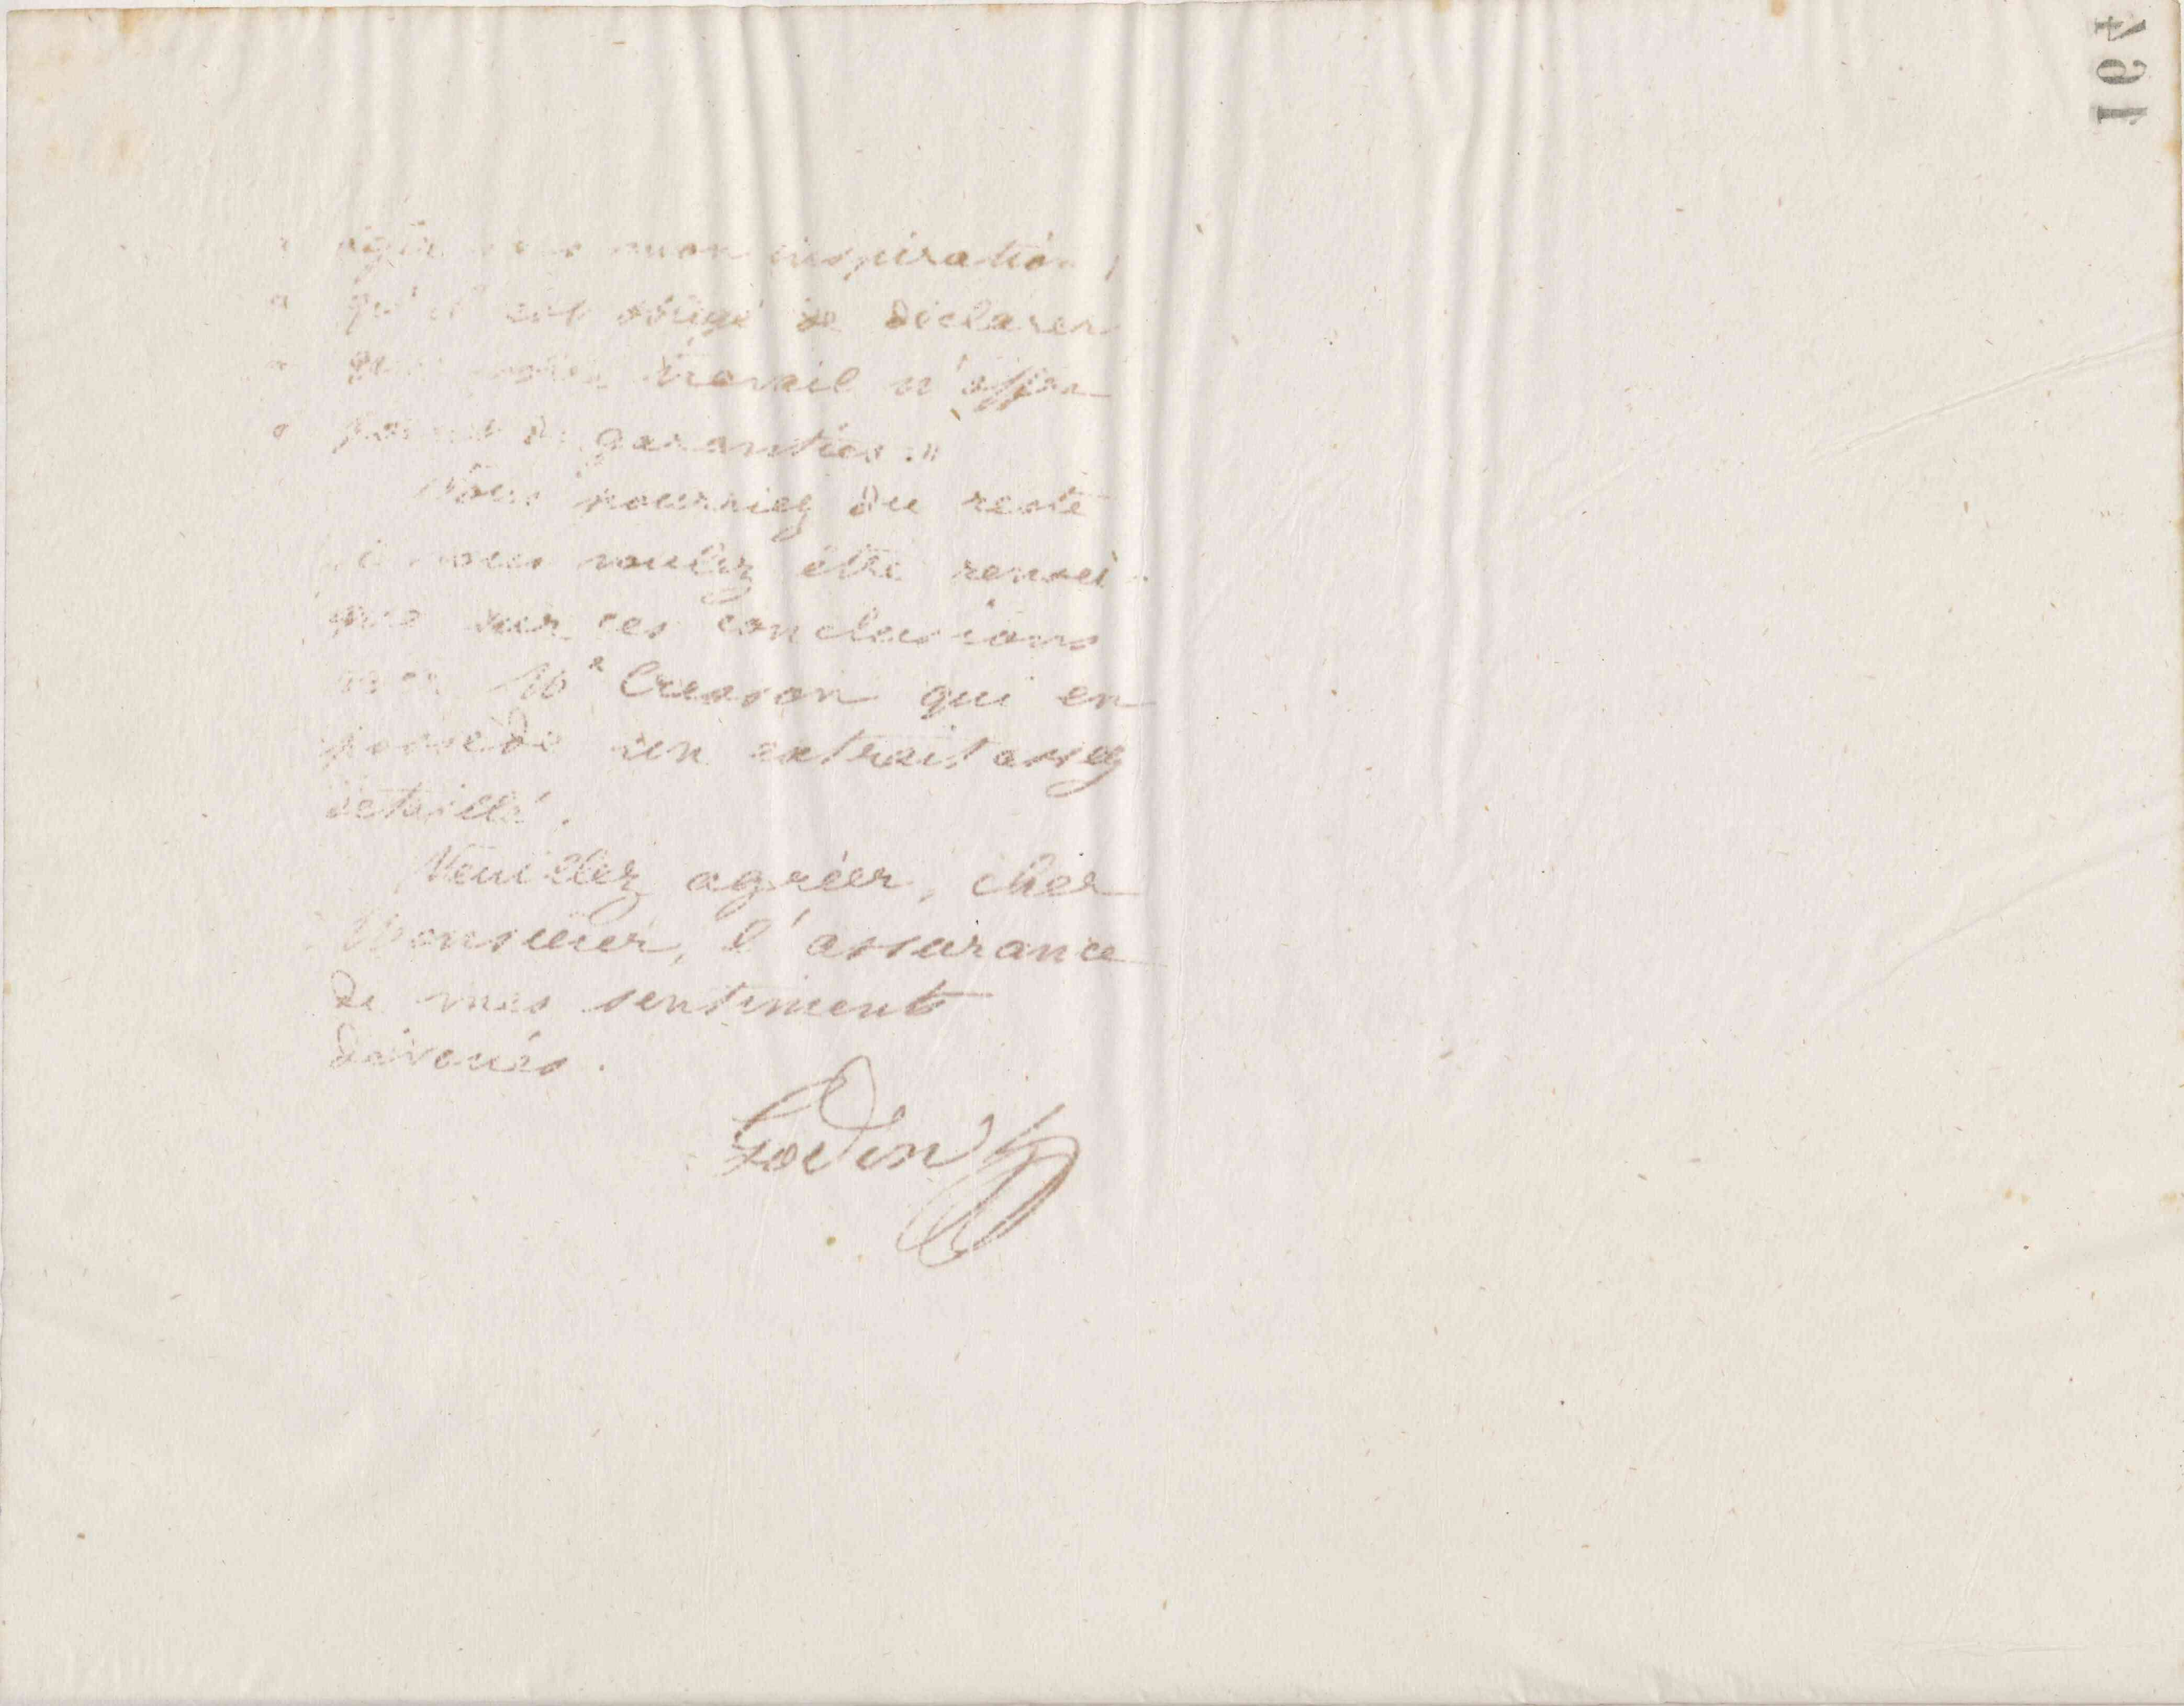 164
« agir sous mon inspiration,
« qu'il est obligé de déclarer
« que travail n'offre
« point de garanties."
Vous pourriez du reste
si vous voulez être rensei-
gné sur ces conclusions
voir Me Cresson qui en
possède un extrait assez
détaillé.
Veuillez agréer, cher
Monsieur, l'assurance
de mes sentiments
dévoués.
Godin